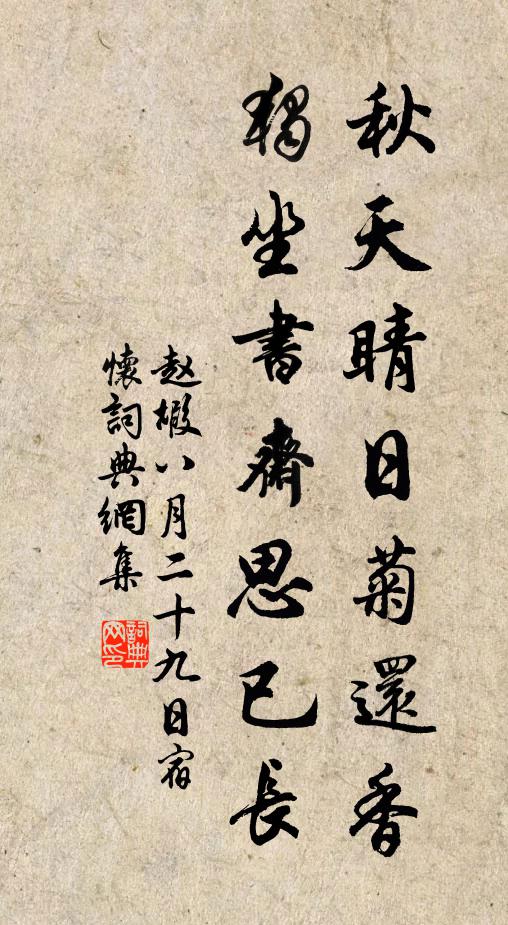 秋天晴日菊還香
獨坐書齋思已長
赵嘏八月二十九日宿
懷詞典網集
詞典網印